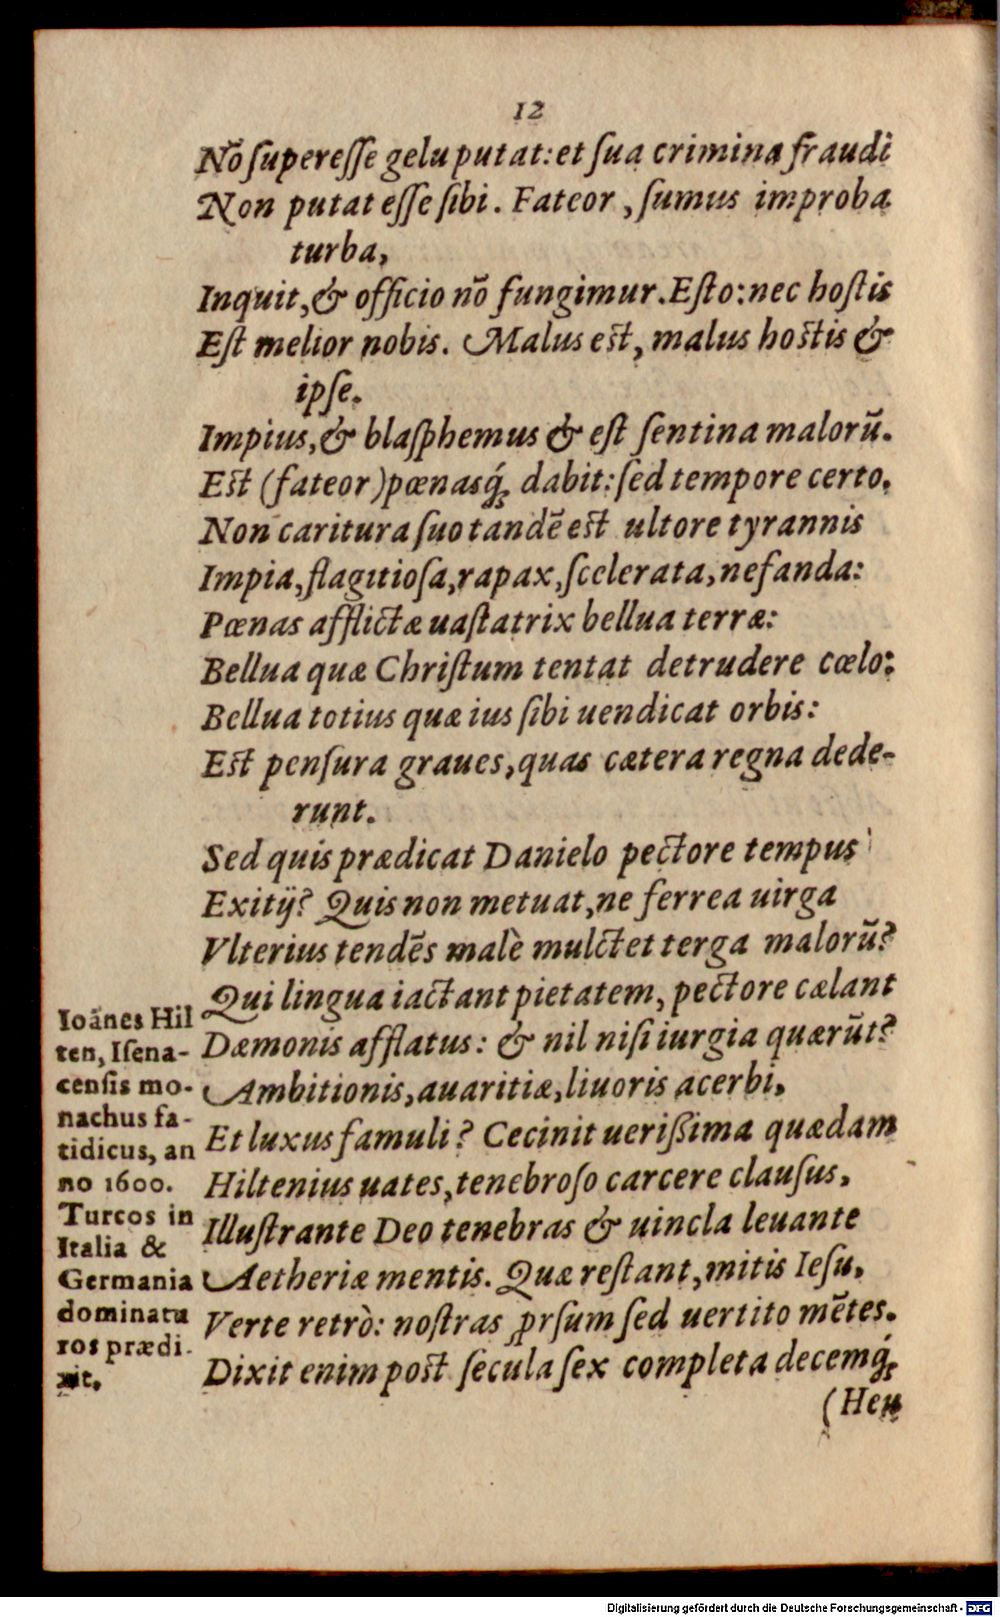 12
Nõ ſupereſſe gelu putat: et ſua crimina fraudi
Non putat eſſe ſibi. Fateor, ſumus improba
turba,
Inquit, & officio nõ fungimur. Eſto: nec hoſtis
Eſt melior nobis. Malus eſt, malus hoſtis &
ipſe.
Impius, & blaſphemus & eſt ſentina malorũ.
Eſt (fateor) pœnasq́; dabit: ſed tempore certo.
Non caritura ſuo tandẽ eſt ultore tyrannis
Impia, flagitioſa, rapax, ſcelerata, nefanda:
Pœnas afflictæ uaſtatrix bellua terræ:
Bellua quæ Chriſtum tentat detrudere cœlo:
Bellua totius quæ ius ſibi uendicat orbis:
Eſt penſura graues, quas cætera regna dede-
runt.
Sed quis prædicat Danielo pectore tempus
Exitij? Quis non metuat, ne ferrea uirga
Vlterius tendẽs malè mulctet terga malorũ?
Qui lingua iactant pietatem, pectore cælant
Dæmonis afflatus: & nil niſi iurgia quærũt?
Ambitionis, auaritiæ, liuoris acerbi,
Et luxus famuli? Cecinit ueriſsima quædam
Hiltenius uates, tenebroſo carcere clauſus,
Illuſtrante Deo tenebras & uincla leuante
Aetheriæ mentis. Quæ reſtant, mitis Ieſu,
Verte retrò: noſtras ꝓrſum ſed uertito mẽtes.
Dixit enim poſt ſecula ſex completa decemq́;
(Heu
Ioãnes Hil
ten, Iſena-
cenſis mo-
nachus fa-
tidicus, an
no 1600.
Turcos in
Italia &
Germania
dominatu
ros prædi-
xit.
Digitalisierung gefördert durch die Deutsche Forschungsgemeinschaft - DFG